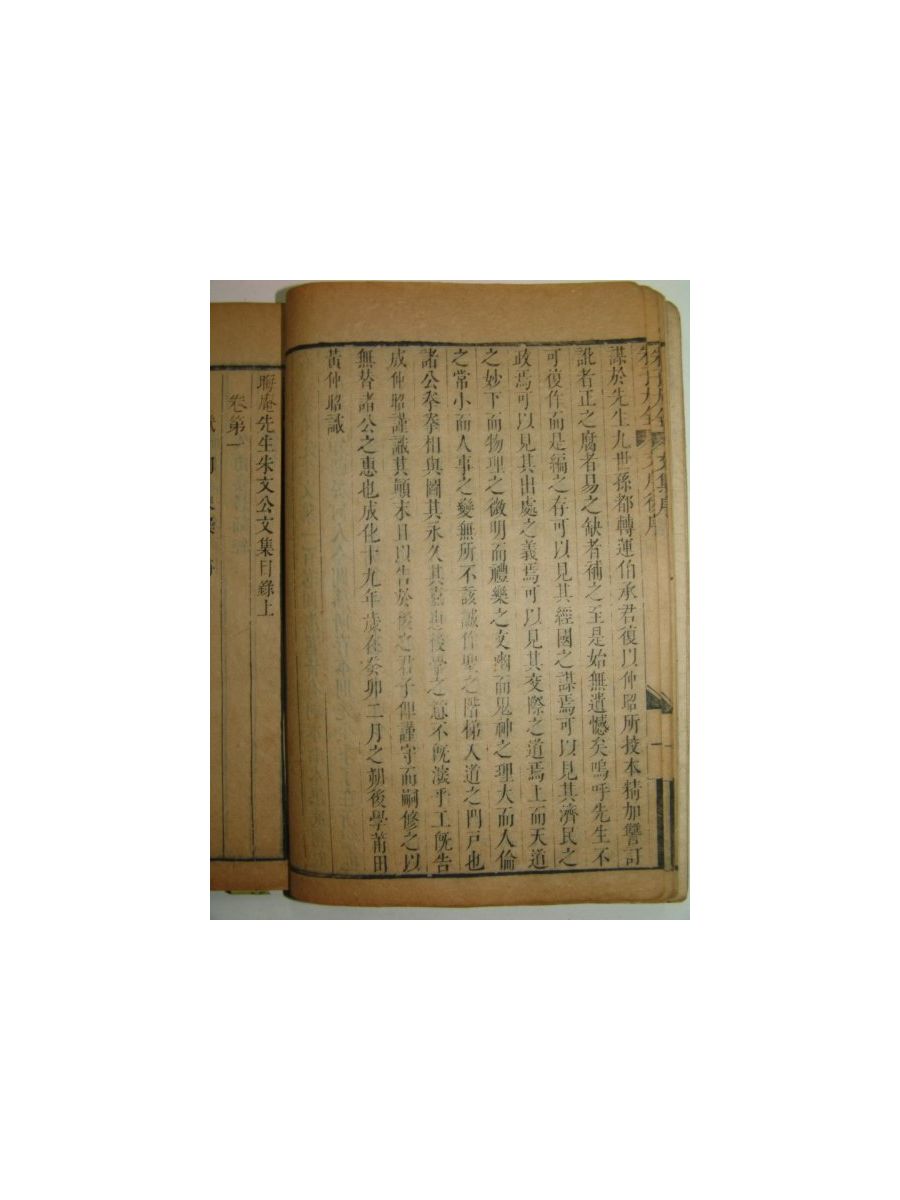 謀於先生九世孫都轉運伯承君復以仲昭所挍本精加讐訂
訛者正之腐者易之缺者補之至是始無遺憾矣嗚呼先生不
可復作而是編之存可以見其經國之謀焉可以見其濟民之
政焉可以見其出處之義焉可以見其交際之道焉上而天道
之妙下而物理之微明而禮樂之文幽而鬼神之理大而人倫
之常小而人事之變無所不該誠作聖之階梯入道之門戸也
諸公拳拳相與圖其永久其嘉惠後學之意不旣深乎工旣告
成仲昭謹識其顛末且以告於後之君子俾謹守而嗣修之以
無替諸公之惠也成化十九年歲在癸卯二月之朔後學莆田
黃仲昭識
晦庵先生朱文公文集目錄上
卷第一